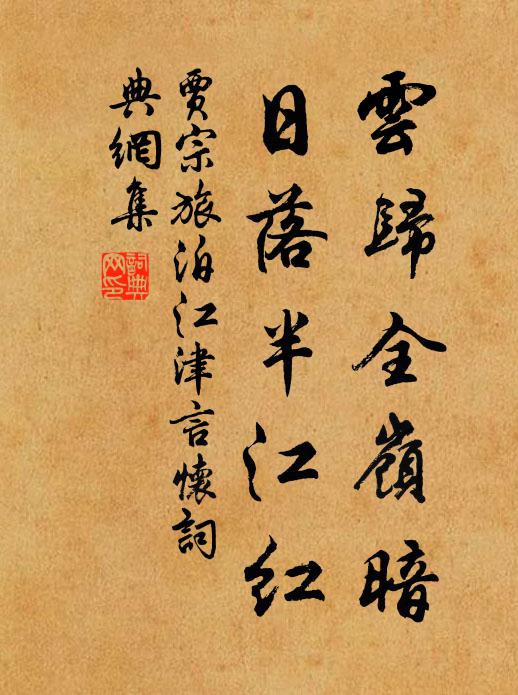 雲歸全嶺暗
日落半江紅
賈宗旅泊江津言懷詞
典網集
詞典網印